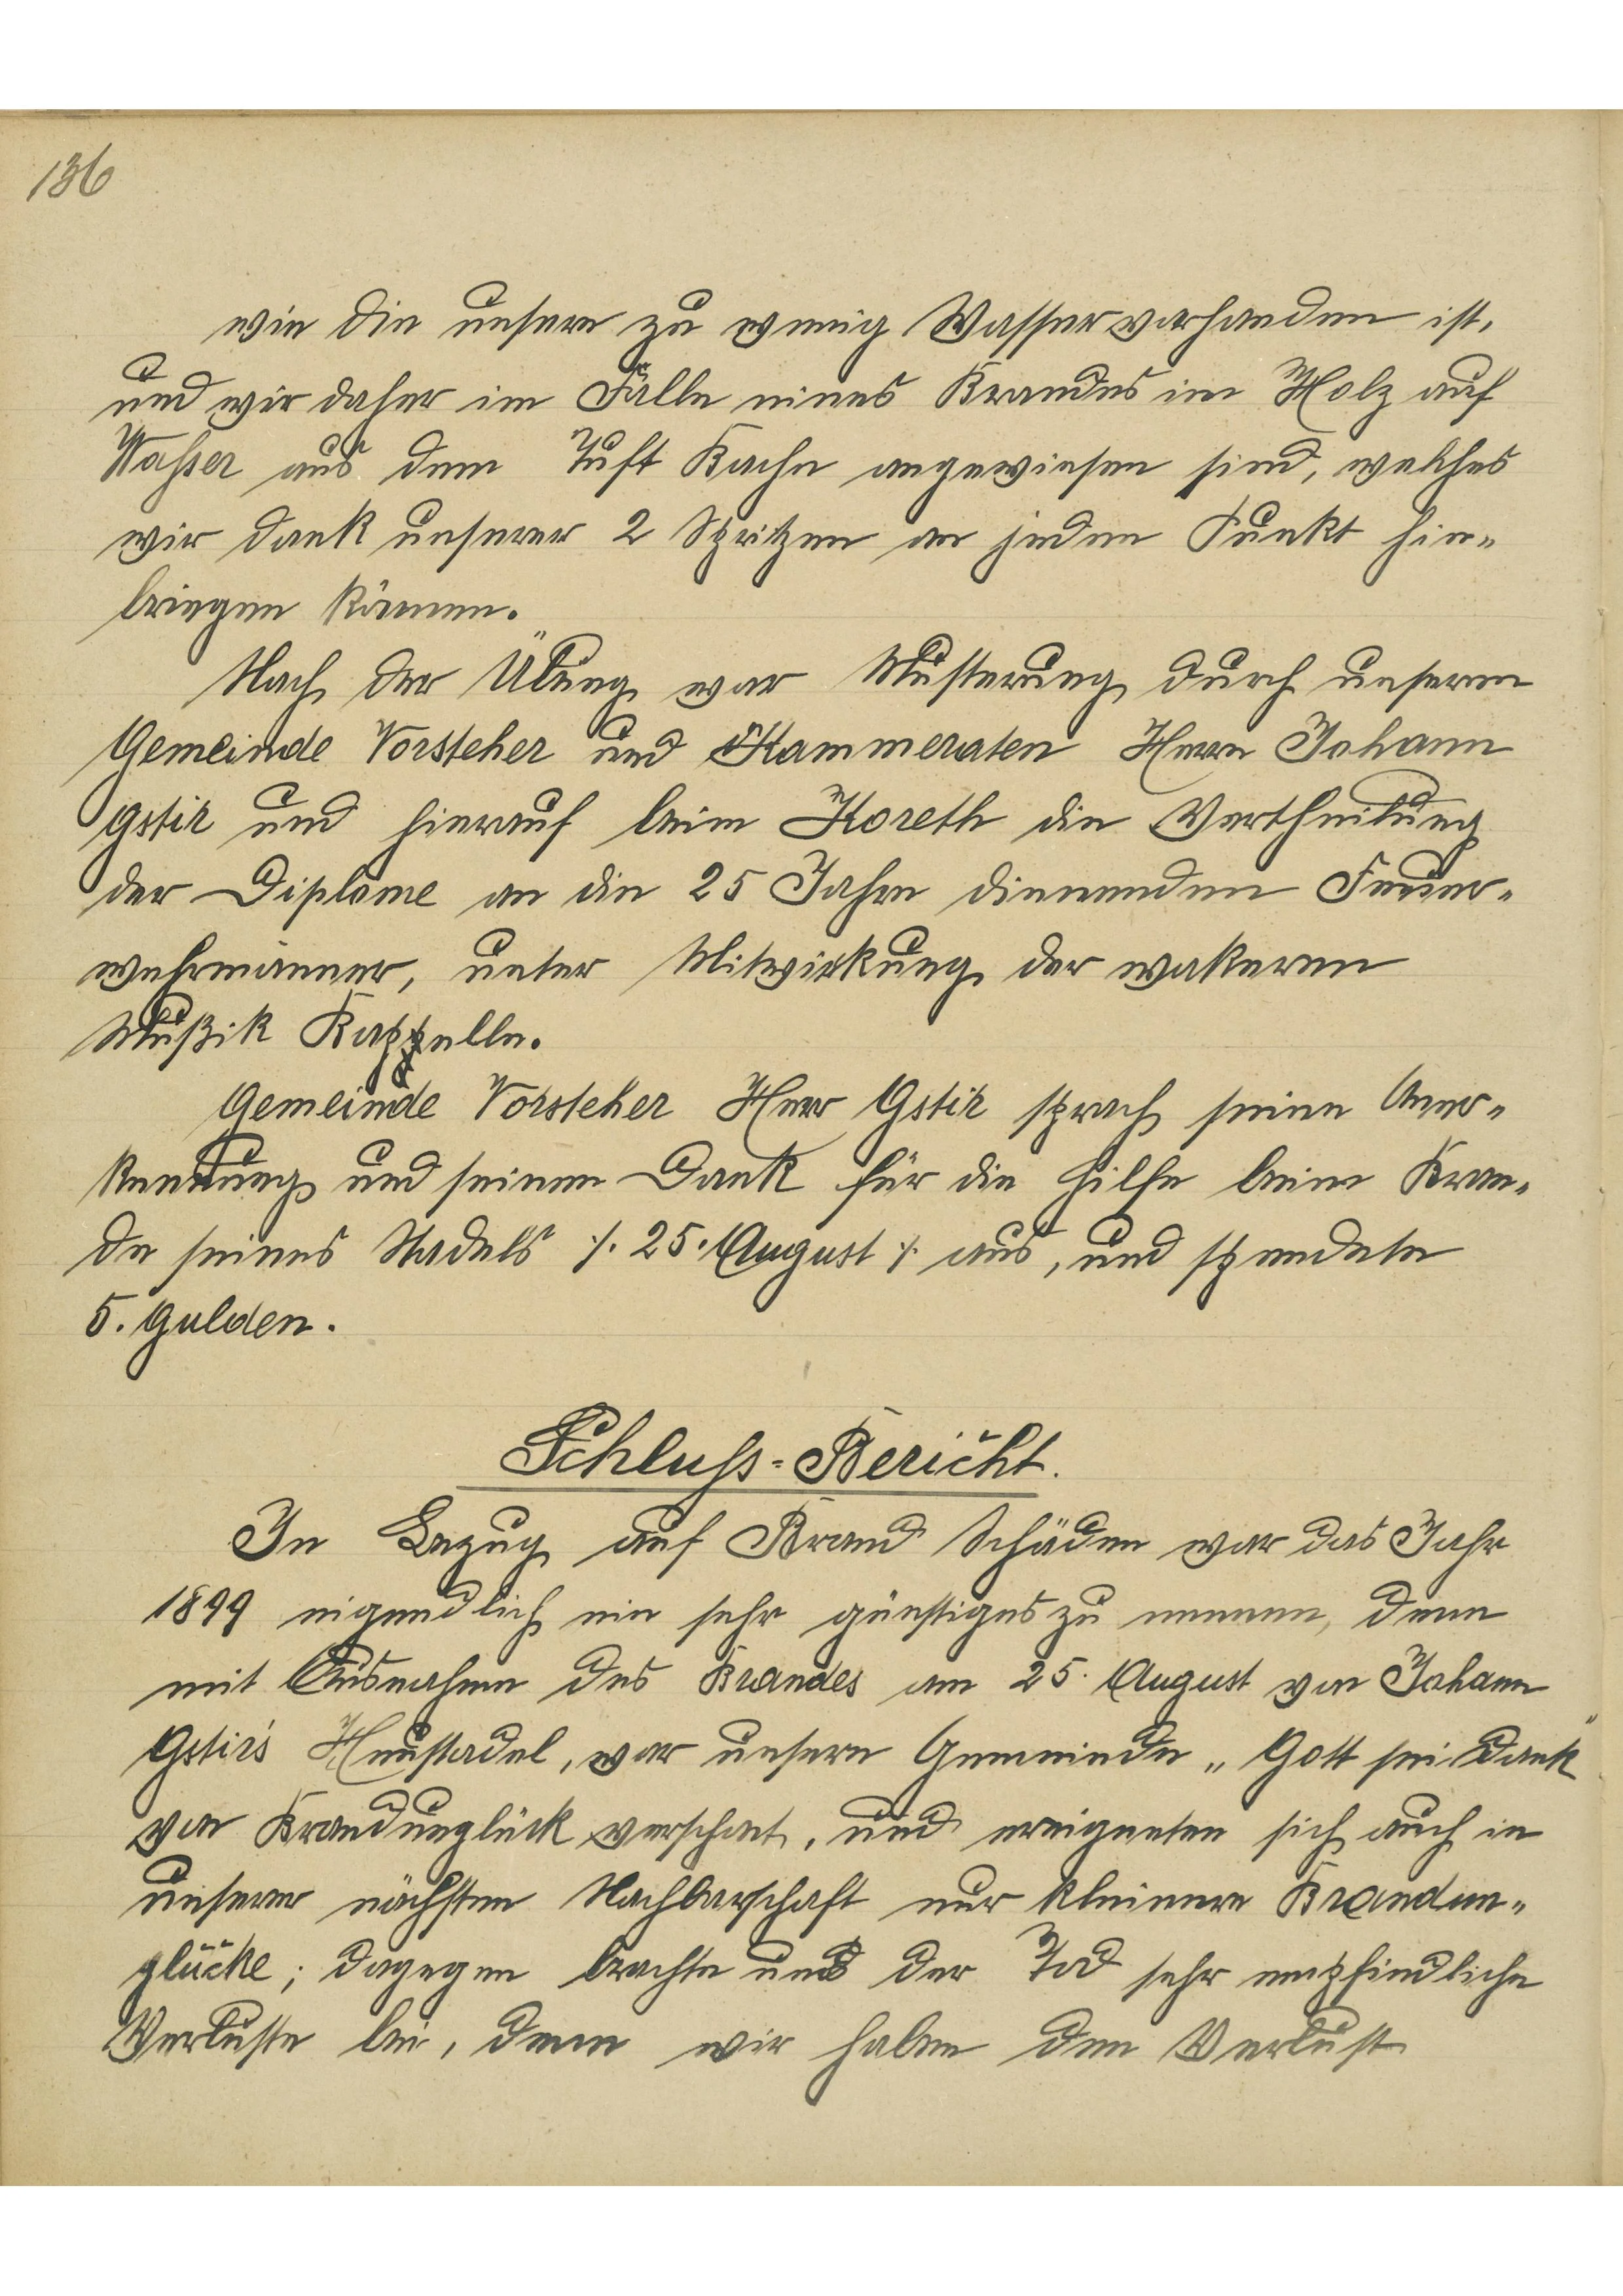 136
wie die unsere zu wenig Wasser vorhanden ist,
und wir daher im Fälle eines Brandes im Holz auf
Waßer aus dem Tuft Bache angewiesen sind, welches
wir dank unserer 2 Spritzen an jeden Punkt hin=
bringen können.
Nach der Übung war Musterung durch unseren
Gemeinde Vorsteher und Kammeraten Herrn Johann
Gstir und hierauf beim Koreth die Vertheilung
der Diplome an die 25 Jahre dienenden Feuer=
wehrmänner, unter Mitwirkung der wakeren
Mußik Kappelle.
Gemeinde Vorsteher Herr Gstir sprach seine Aner=
kennung und seinen Dank für die Hilfe beim Bran=
de seines Stadels ⁒ 25. August ⁒ aus, und spendete
5. Gulden.
Schluß=Bericht.
In Bezug auf Brand Schäden war das Jahr
1899 eigendlich ein sehr günstiges zu nennen, denn
mit Ausnahme des Brandes am 25. August von Johann
Gstir's Heustadel, war unsere Gemeinde „Gott sei Dank"
von Brandunglück verschont, und ereigneten sich auch in
unserer nächsten Nachbarschaft nur kleinere Brandun=
glücke; dagegen brachte uns der Tod sehr empfindliche
Verluste bei, denn wir haben den Verlust